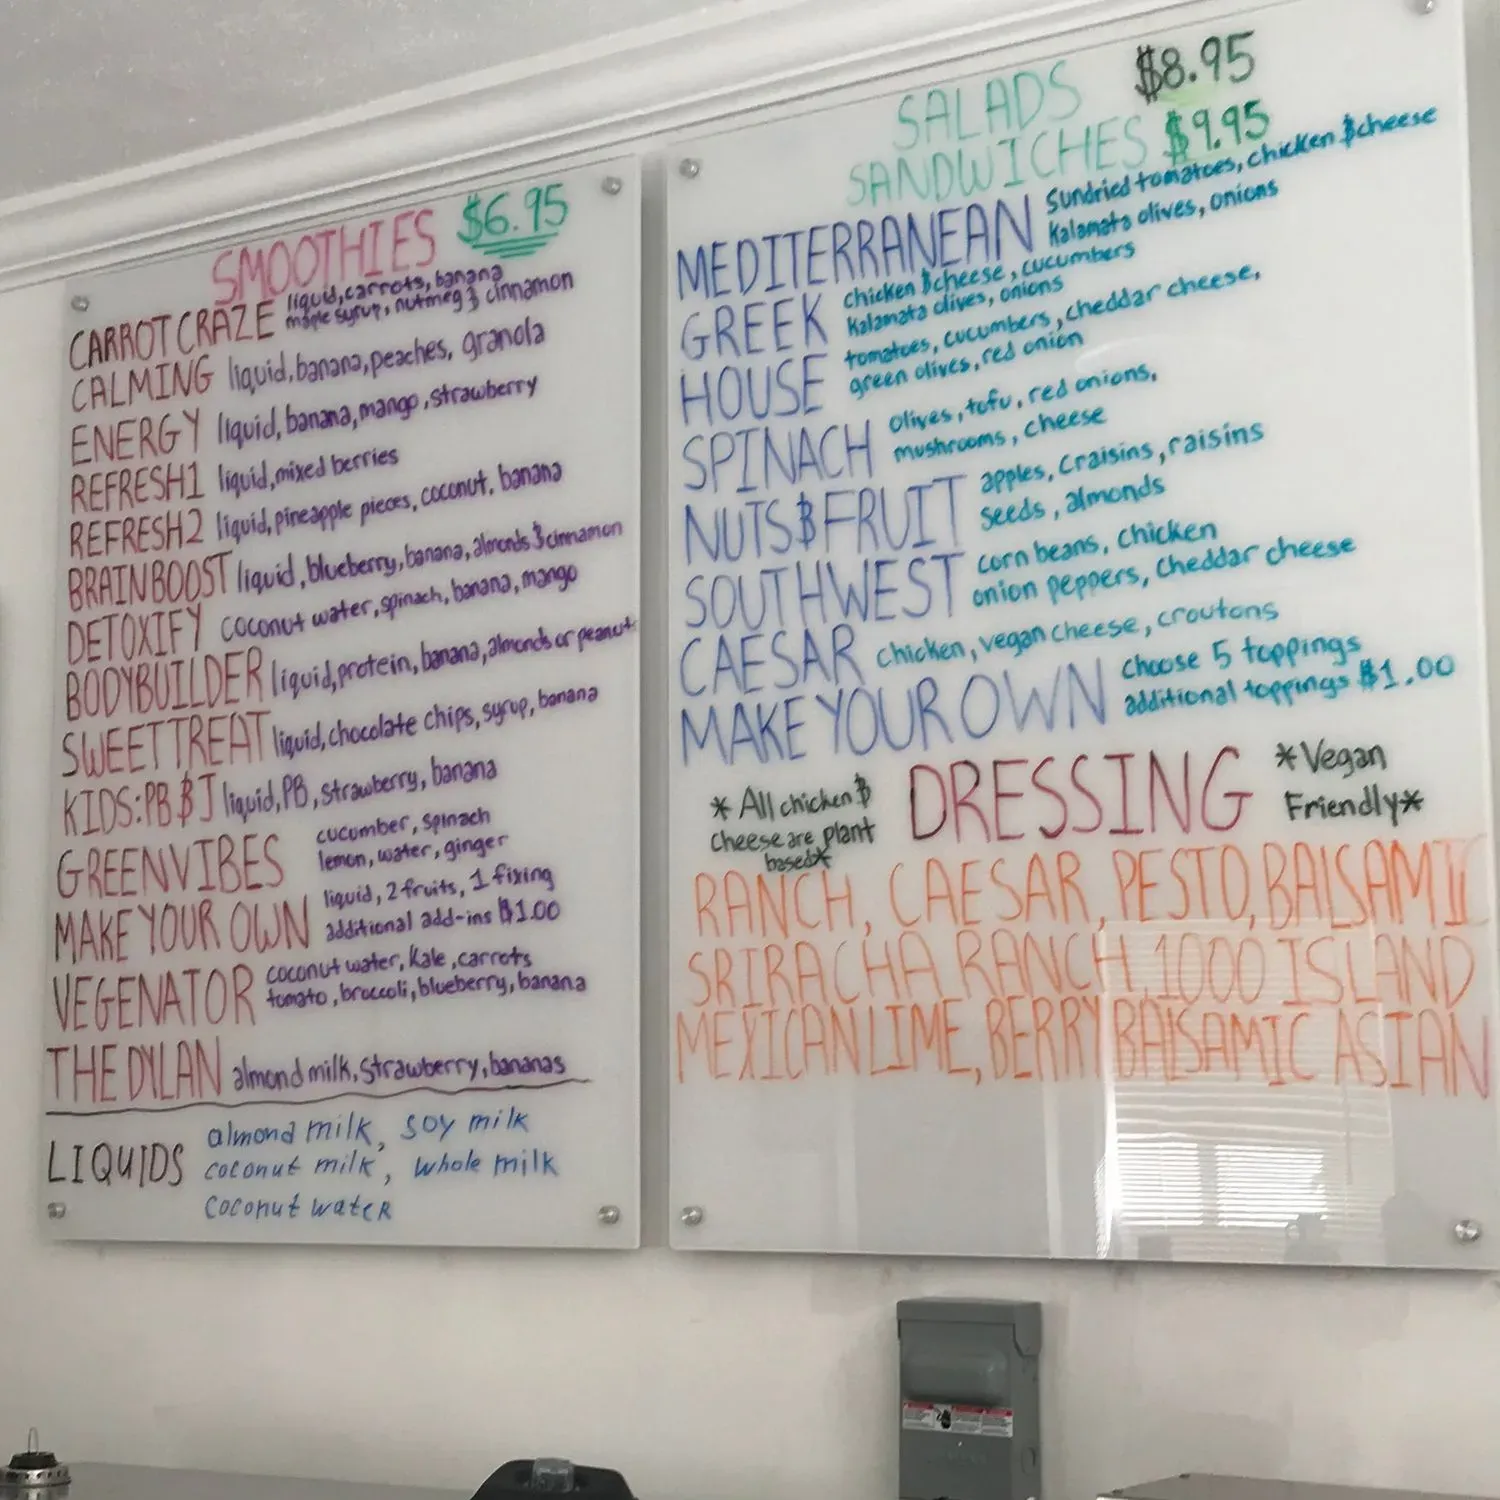 SMOOTHIES $6.95
CARROT CRAZE liquid, carrots, banana
maple syrup, nutmeg & cinnamon
CALMING liquid, banana, peaches, granola
ENERGY liquid, banana, mango, strawberry
REFRESH1 liquid, mixed berries
REFRESH2 liquid, pineapple pieces, coconut, banana
BRAIN BOOST liquid, blueberry, banana, almonds & cinnamon
DETOXIFY coconut water, spinach, banana, mango
BODYBUILDER liquid, protein, banana, almonds or peanuts
SWEET TREAT liquid, chocolate chips, syrup, banana
KIDS: PB & J liquid, PB, strawberry, banana
GREEN VIBES cucumber, spinach
lemon, water, ginger
MAKE YOUR OWN liquid, 2 fruits, 1 fixing
additional add-ins $1.00
VEGENATOR coconut water, kale, carrots
tomato, broccoli, blueberry, banana
THE DYLAN almond milk, strawberry, bananas
LIQUIDS almond milk, soy milk
coconut milk, whole milk
coconut water
SALADS $8.95
SANDWICHES $9.95
MEDITERRANEAN Sundried tomatoes, chicken & cheese
Kalamata olives, onions
GREEK chicken & cheese, cucumbers
Kalamata olives, onions
HOUSE tomatoes, cucumbers, cheddar cheese,
green olives, red onion
SPINACH olives, tofu, red onions,
mushrooms, cheese
NUTS & FRUIT apples, Craisins, raisins
seeds, almonds
SOUTHWEST corn beans, chicken
onion peppers, cheddar cheese
CAESAR chicken, vegan cheese, croutons
MAKE YOUR OWN choose 5 toppings
additional toppings $1.00
* All chicken &
cheese are plant
based*
DRESSING
*Vegan
Friendly*
RANCH, CAESAR, PESTO, BALSAMIC
SRIRACHA RANCH, 1000 ISLAND
MEXICAN LIME, BERRY BALSAMIC ASIAN